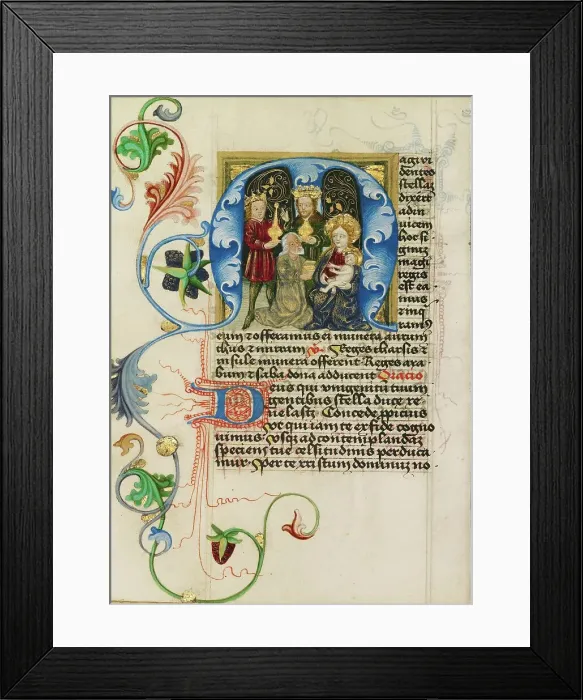 Magi vi
dentes
stellaz
dixert
adin
uicem
hoc si
gnuz
magi
regis
est ea
mus
inq
ram9
eum ⁊ offeramus ei munera aurum
thus ⁊ mirram v Reges tharsis ⁊
insule munera offerent · Reges ara
bum ⁊ saba dona adducent Oracio
Deus qui vnigenitū tuum
gentibus stella duce re
uelasti · Concede ppicius
vt qui iam te ex fide cogno
uimus · vsqz ad contemplandaz
speciem tue celsitudinis perduca
mur · Per te xristum dominuz no